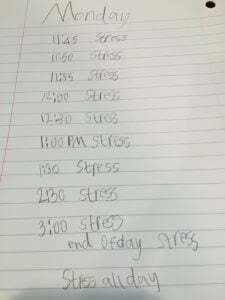 Monday
11:45 Stress
11:50 Stress
11:55 Stress
12:00 Stress
12:30 Stress
1:00 PM Stress
1:30 Stress
2:30 Stress
3:00 Stress
end of day Stress
Stress all day